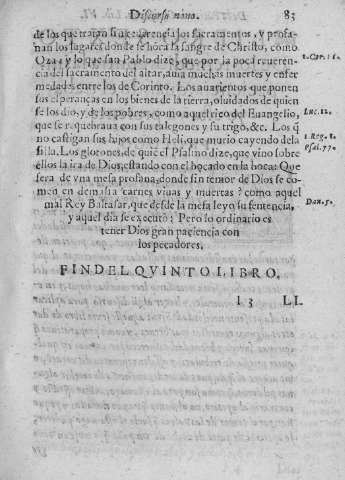 Discurso nono. 83
de los que tratan si
los sacramentos, y profa-
nan los lugares donde se hōra la sangre de Christo, como
Oza: y lo que san Pablo dize, que por la poca reueren- 1. Cor. 11.
cia del sacramento del altar, auia muchas muertes y enfer
medades entre los de Corinto. Los auarientos que ponen
sus esperanças en los bienes de la tierra, oluidados de quien
se los dio, y de los pobres, como aquel rico del Euangelio, Luc. 12.
que se requebraua con sus talegones y su trigo, &c. Los q̃
no castigan sus hijos como Heli, que murio cayendo de la 1. Reg. 2.
silla. Los glotones, de quiē el Psalmo dize, que vino sobre Psal. 77.
ellos la ira de Dios, estando con el bocado en la boca: Que
sera de vna mesa profana, donde sin temor de Dios se co-
men en demasia carnes viuas y muertas? como aquel
mal Rey Baltasar, que desde la mesa leyo su sentencia, Dan. 5.
y aquel dia se executò: Pero lo ordinario es
tener Dios gran paciencia con
los pecadores.
FIN DEL QVINTO LIBRO.
L 3 LI